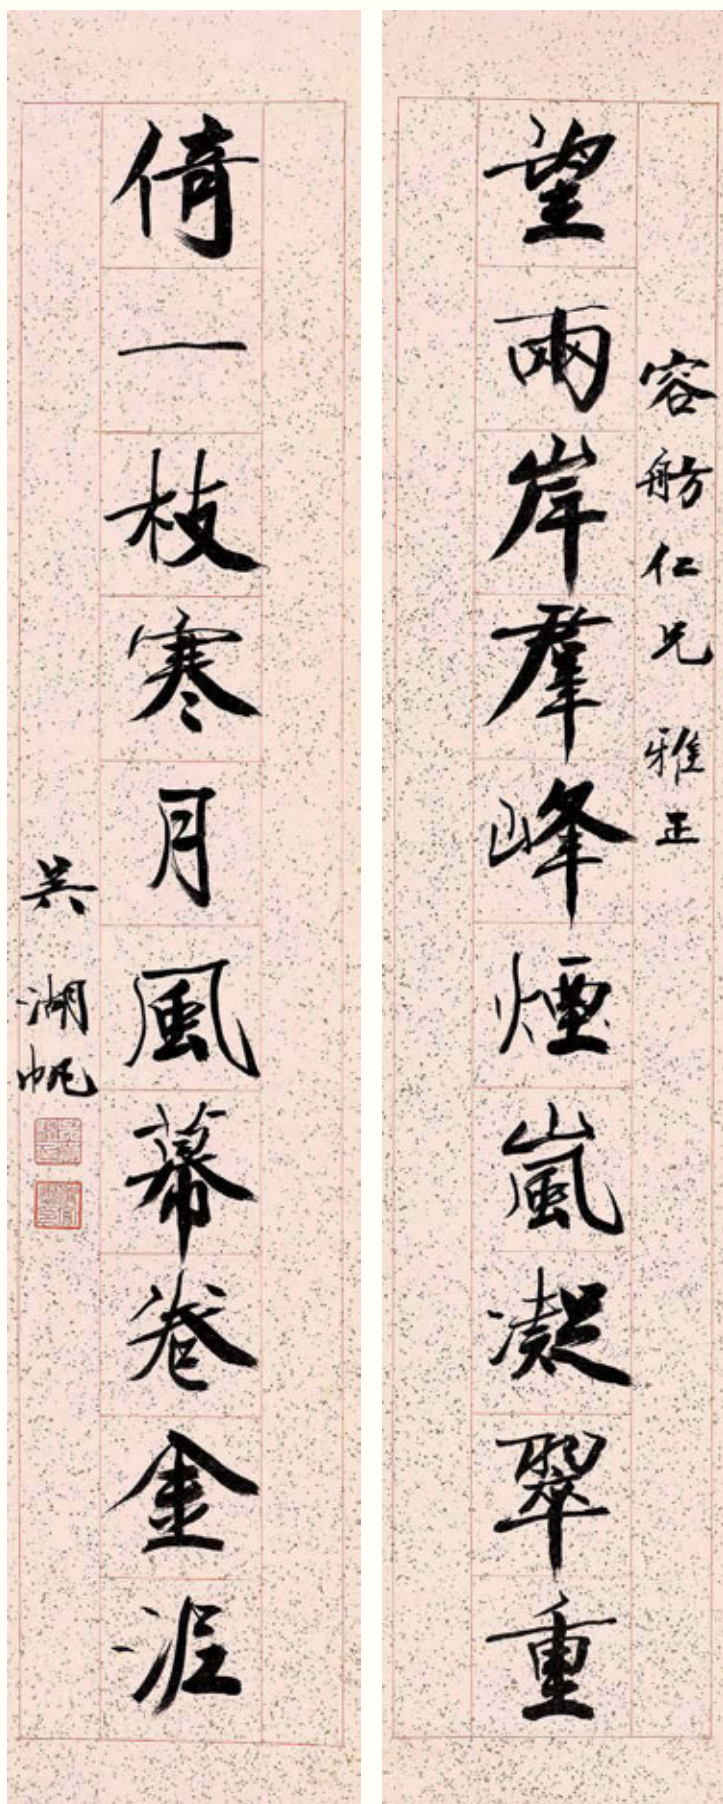 容舫仁兄雅正
望兩岸羣峰煙嵐凝翠重
倚一枝寒月風幕卷金泥
吳湖帆